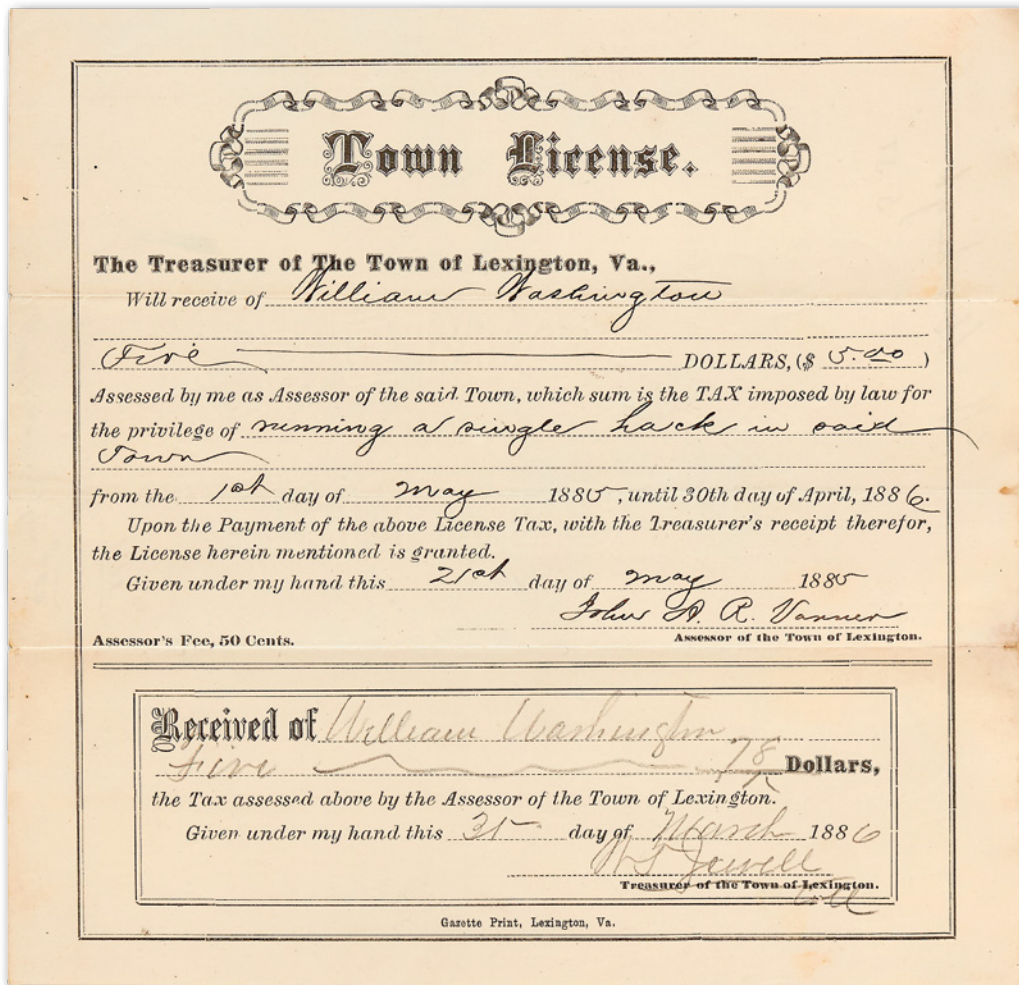 Town License.
The Treasurer of The Town of Lexington, Va.,
Will receive of William Washington
Five DOLLARS, ($ 5.00 )
Assessed by me as Assessor of the said Town, which sum is the TAX imposed by law for
the privilege of running a single hack in said
Town
from the 1st day of May 1885, until 30th day of April, 1886.
Upon the Payment of the above License Tax, with the Treasurer's receipt therefor,
the License herein mentioned is granted.
Given under my hand this 21st day of May 1885
John A. R. Varner
Assessor's Fee, 50 Cents.
Assessor of the Town of Lexington.
Received of William Washington
Five Dollars,
the Tax assessed above by the Assessor of the Town of Lexington.
Given under my hand this day of March 1886
Treasurer of the Town of Lexington.
Gazette Print, Lexington, Va.